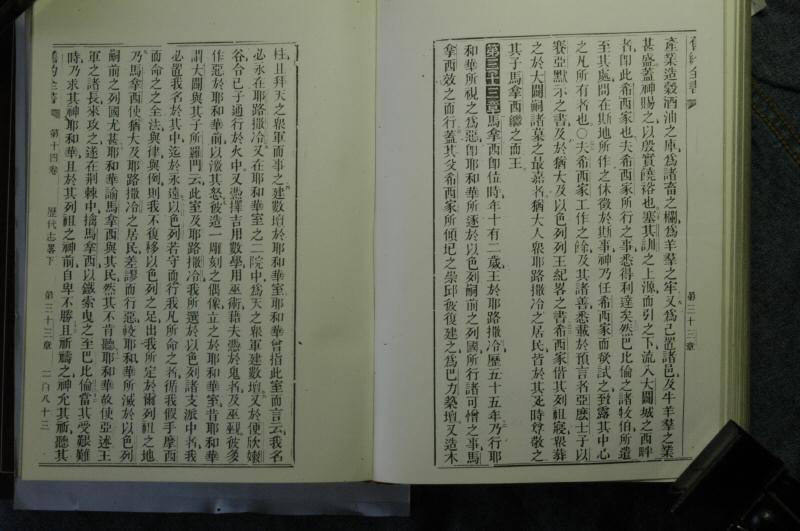 舊約全書
產業造穀酒油之庫爲諸畜之欄爲羊羣之牢又爲己置諸邑及牛羊羣之業
甚盛蓋神賜之以殷實饒裕也塞其訓之上源而引之下流入大闢城之西畔
者卽此希西家也夫希西家所行之事悉得利達矣然巴比倫之諸牧伯所遣
至其處問在斯地所作之休徵於斯事神乃任希西家而試之致露其中心
之凡所有者也○夫希西家工作之餘及其諸善悉載於預言者亞麽士子以
賽亞默示之書及於猶大及以色列列王紀畧之書希西家偕其列祖寢衆葬
之於大闢嗣諸葉之最嘉者猶大人衆耶路撒冷之居民皆於其死時尊敬之
其子馬拿西繼之而王
第三十三章馬拿西卽位時年十有二歲王於耶路撒冷歷五十五年乃行耶
和華所視之爲惡卽耶和華所逐於以色列嗣前之列國所行諸可憎之事馬
拿西效之而行蓋其父希西家所傾圮之崇邱彼復建之爲巴力築壇又造木
第三十三章
柱且拜天之衆軍而事之建數壇於耶和華室耶和華曾指此室而言云我名
必永在耶路撒冷又在耶和華室之二院中爲天之衆軍建數壇又於便欣嫐
谷令已子通行於火中又憑擇吉用數學用巫術藉夫憑於鬼者及巫覡彼多
作惡於耶和華前以激其怒彼造一彫刻之偶像立之於耶和華室昔耶和華
謂大闢與其子所羅門云此室及耶路撒冷我所選於以色列諸支派中者我
必置我名於其中迄於永遠以色列若守而行我凡所命之者循我假手摩西
而命之之全法與律與例則我不復移以色列之足出我所定於爾列祖之地
乃馬拿西使猶大及耶路撒冷之居民差謬而行惡較耶和華所滅於以色列
嗣前之列國尤甚耶和華諭馬拿西與其民然其不肯聽耶和華故使亞述王
軍之諸長來攻之遂在荆棘中擒馬拿西以鐵索曳之至巴比倫當其受艱難
時乃求其神耶和華且於其列祖之神前自卑不勝且祈禱之神允其祈聽其
舊約全書 第十四卷 歷代志畧下 第三十三章 二百八十三